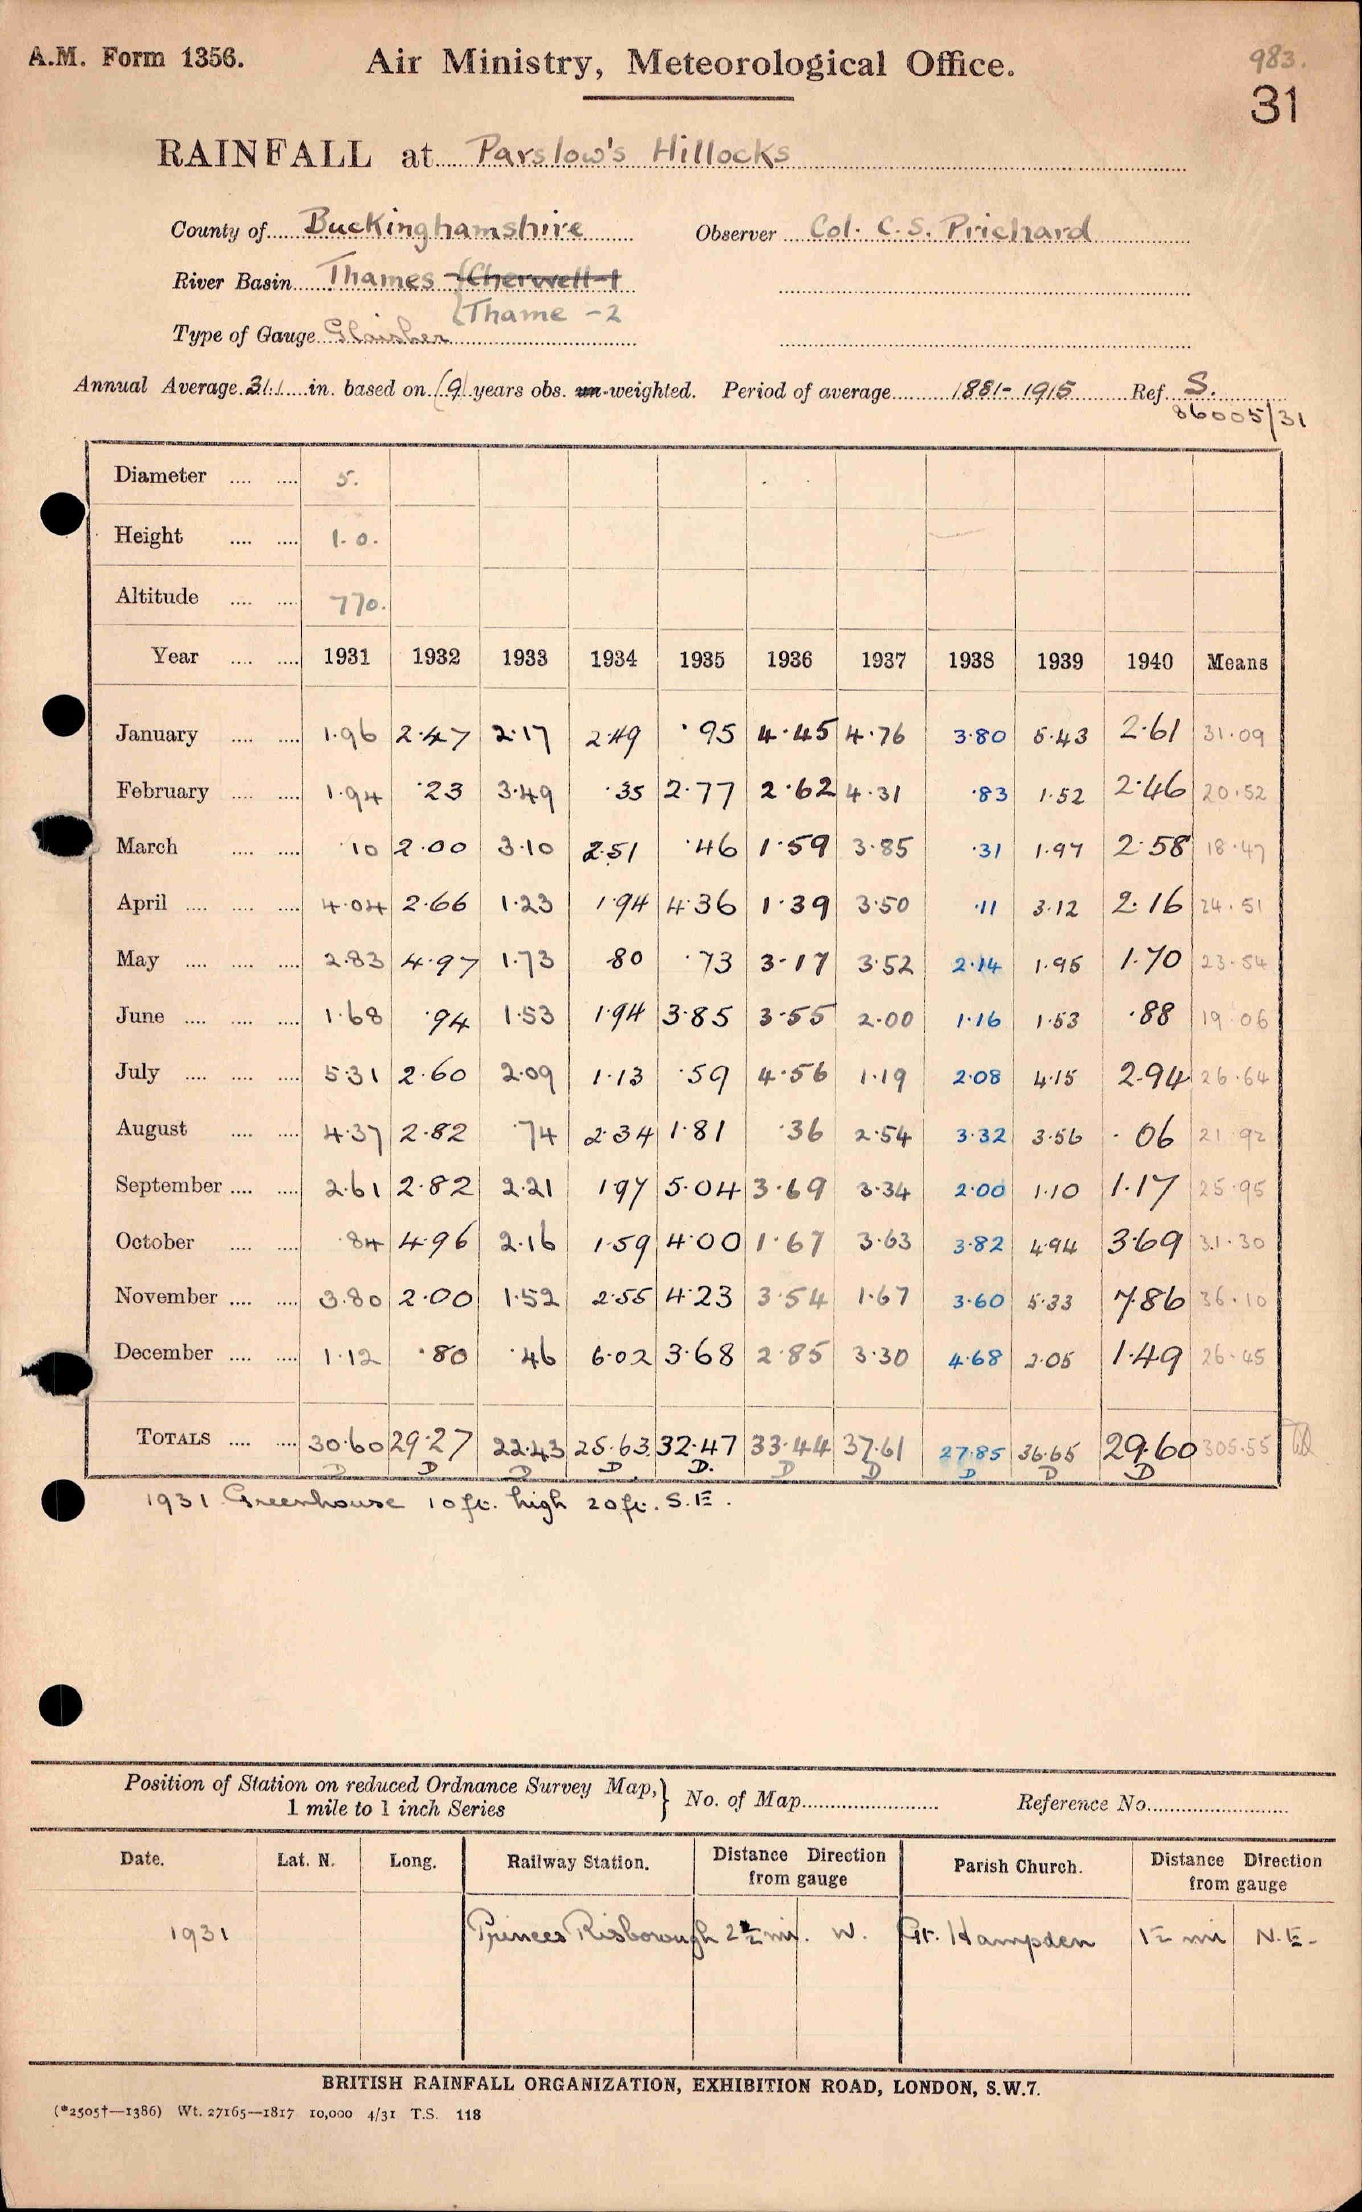 A.M. Form 1356.
Air Ministry, Meteorological Office.
983.
31
RAINFALL at Parslow's Hillocks
County of Buckinghamshire Observer Col. C.S. Prichard
River Basin Thames {Cherwell-1
{Thame -2
Type of Gauge Glaisher
Annual Average 31.1 in. based on (9) years obs. un-weighted. Period of average 1881-1915 Ref. S.
86005/31
Diameter 5.
Height 1.0.
Altitude 770.
Year 1931 1932 1933 1934 1935 1936 1937 1938 1939 1940 Means
January 1.96 2.47 2.17 2.49 .95 4.45 4.76 3.80 5.43 2.61 31.09
February 1.94 .23 3.49 .35 2.77 2.62 4.31 .83 1.52 2.46 20.52
March .10 2.00 3.10 2.51 .46 1.59 3.85 .31 1.97 2.58 18.47
April 4.04 2.66 1.23 1.94 4.36 1.39 3.50 .11 3.12 2.16 24.51
May 2.83 4.97 1.73 .80 .73 3.17 3.52 2.14 1.95 1.70 23.54
June 1.68 .94 1.53 1.94 3.85 3.55 2.00 1.16 1.53 .88 19.06
July 5.31 2.60 2.09 1.13 .59 4.56 1.19 2.08 4.15 2.94 26.64
August 4.37 2.82 .74 2.34 1.81 .36 2.54 3.32 3.56 .06 21.92
September 2.61 2.82 2.21 1.97 5.04 3.69 3.34 2.00 1.10 1.17 25.95
October .84 4.96 2.16 1.59 4.00 1.67 3.63 3.82 4.94 3.69 31.30
November 3.80 2.00 1.52 2.55 4.23 3.54 1.67 3.60 5.33 7.86 36.10
December 1.12 .80 .46 6.02 3.68 2.85 3.30 4.68 2.05 1.49 26.45
TOTALS 30.60 29.27 22.43 25.63 32.47 33.44 37.61 27.85 36.65 29.60 305.55
D D D D D. D D D D D
1931 Greenhouse 10 ft. high 20 ft. S.E.
Position of Station on reduced Ordnance Survey Map, 1 mile to 1 inch Series } No. of Map Reference No.
Date. Lat. N. Long. Railway Station. Distance Direction from gauge Parish Church. Distance Direction from gauge
1931 Princes Risborough 2½ mi. W. Gt. Hampden 1½ mi N.E.
BRITISH RAINFALL ORGANIZATION, EXHIBITION ROAD, LONDON, S.W.7.
(*2505†—1386) Wt. 27165—1817 10,000 4/31 T.S. 118